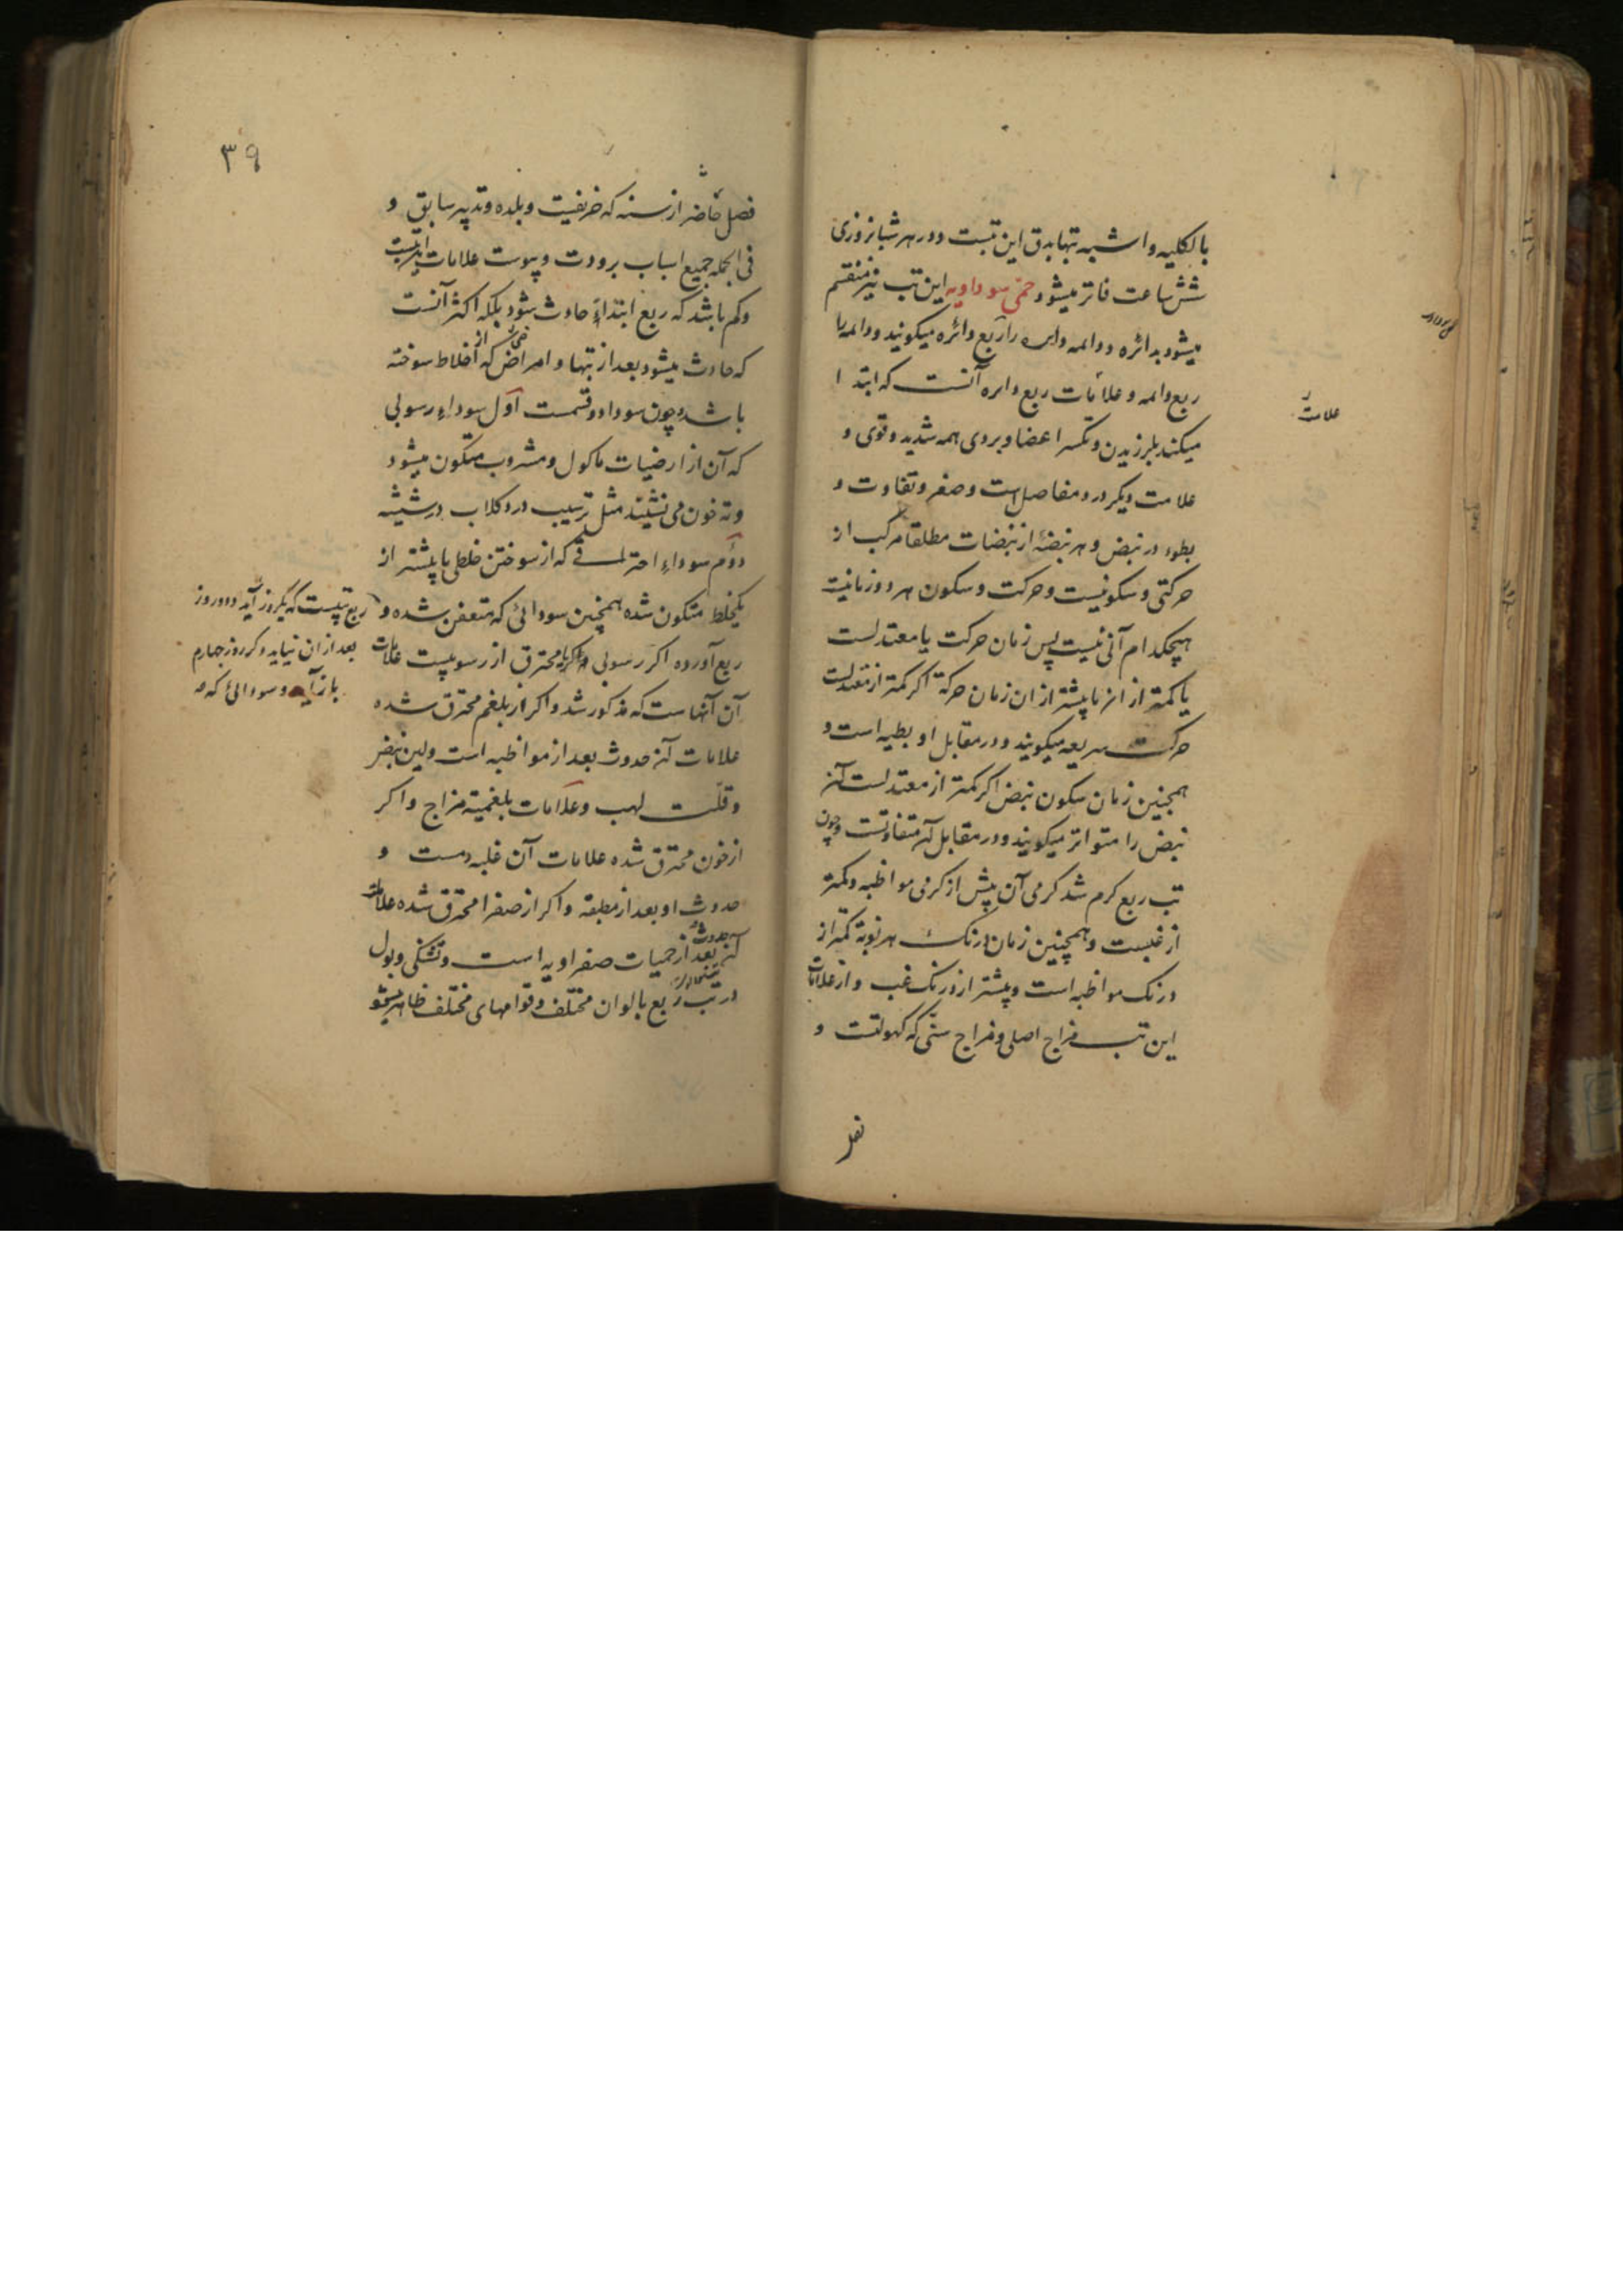 بالکلیه و اشبه تبها بدق این تبست و در هر شبانروزی
شش ساعت فاتر میشود حمی سوداویه این تب نیز منقسم
میشود بدائره و دائمه دایره را ربع دائره میکویند و دائمه را
ربع دائمه و علامات ربع دایره آنست که ابتدا
میکند بلرزیدن و تکسر اعضا و بردی همه شدید و قوی و
علامت دیکر درد مفاصل است و صغر و تفاوت و
بطوء در نبض و هر نبضهٔ از نبضات مطلقا مرکب از
حرکتی و سکونیست و حرکت و سکون هر دو زمانیند
هیچکدام آنی نیست پس زمان حرکت یا معتدلست
یا کمتر از ان یا بیشتر از ان زمان حرکة اکر کمتر از معتدلست
حرکت سریعه میکویند و در مقابل او بطیه است و
همچنین زمان سکون نبض اکر کمتر از معتدلست آن
نبض را متواتر میکویند و در مقابل آن متفاوتست و چون
تب ربع کرم شد کرمی آن بیش از کرمی مواظبه و کمتر
از غبست و همچنین زمان درنک هر نوبة کمتر از
درنک مواظبه است و بیشتر از درنک غب و از علامات
این تب مزاج اصلی و مزاج سنّی که کهولتست و
علامت
فصل
۳۹
فصل حاضر از سنه که خریفیت و بلده و تدبیر سابق و
فی الجمله جمیع اسباب برودت و یبوست علامات این تبست
و کم باشد که ربع ابتداءً حادث شود بلکه اکثر آنست
که حادث میشود بعد از تبها و امراضی که از اخلاط سوخته
باشد و چون سودا دو قسمت اول سوداء رسوبی
که آن از ارضیات ماکول و مشروب متکون میشود
و ته خون می نشیند مثل ترسیب درد کلاب در شیشه
دوم سوداء احتراقی که از سوختن خلطی یا بیشتر از
یکخلط متکون شده همچنین سودائی که متعفن شده و
ربع آورده اکر رسوبی محترق از رسوبیست علامات
آن آنهاست که مذکور شد و اکر از بلغم محترق شده
علامات آن حدوث بعد از مواظبه است و لین نبض
و قلّت لهب و علامات بلغمیة مزاج و اکر
از خون محترق شده علامات آن غلبه دمست و
حدوث او بعد از مطبقه و اکر از صفرا محترق شده علامات
آن حدوث بعد از حمیات صفراویه است و تشنکی و بول
در تب ربع بالوان مختلف و قوامهای مختلف ظاهر میشود
ربع تبیست که یکروز آید و دو روز
بعد از ان نیاید و کر روز چهارم
باز آید و سودائی که